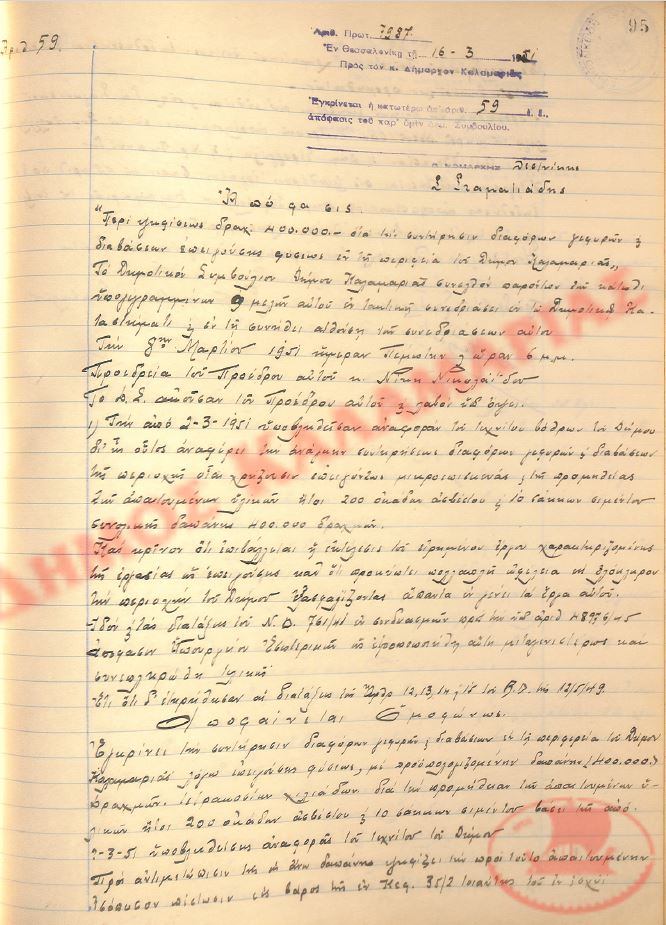 95
Αριθ 59.
Ἀριθ. Πρωτ. 7987
Ἐν Θεσσαλονίκῃ τῇ 16 - 3 1951
Πρὸς τὸν κ. Δήμαρχον Καλαμαριᾶς
Ἐγκρίνεται ἡ κατωτέρω ὑπ' ἀριθ. 59 ἔ.ἔ.,
ἀπόφασις τοῦ παρ' ὑμῖν Δημ. Συμβουλίου.
Ο ΝΟΜΑΡΧΗΣ
Σ Σταματιάδης
Ἀπόφασις
"Περὶ ψηφίσεως δραχ. 400.000.- διὰ τὴν συντήρησιν διαφόρων γεφυρῶν &
διαβάσεων ἐπειγούσης φύσεως ἐν τῇ περιφερείᾳ τοῦ Δήμου Καλαμαριᾶς"
Τὸ Δημοτικὸν Συμβούλιον Δήμου Καλαμαριᾶς συνελθὸν παρόντων τῶν κάτωθι
ὑπογεγραμμένων 9 μελῶν αὐτοῦ ἐν τακτικῇ συνεδριάσει ἐν τῷ Δημοτικῷ Κα-
ταστήματι & ἐν τῇ συνήθει αἰθούσῃ τῶν συνεδριάσεων αὐτοῦ
Τὴν 8ην Μαρτίου 1951 ἡμέραν Πέμπτην & ὥραν 6 μ.μ.
Προεδρείᾳ τοῦ Προέδρου αὐτοῦ κ. Νίκη Νικολαΐδου
Τὸ Δ.Σ. ἀκοῦσαν τοῦ Προέδρου αὐτοῦ & λαβὸν ὑπ' ὄψει.
1) Τὴν ἀπὸ 2-3-1951 ὑποβληθεῖσαν ἀναφορὰν τοῦ τεχνίτου τοῦ Δήμου
δι' ἧς οὗτος ἀναφέρει τὴν ἀνάγκην συντηρήσεως διαφόρων γεφυρῶν & διαβάσεων
τῆς περιοχῆς αἵτινες χρήζουσιν ἐπειγόντως μικροεπισκευῆς & τῆς προμηθείας
τῶν ἀπαιτουμένων ὑλικῶν ἤτοι 200 ὀκάδων ἀσβεστίου & 10 σάκκων σιμέντου
συνολικῆς δαπάνης 400.000 δραχμῶν.
Καὶ κρῖνον ὅτι ἐπιβάλλεται ἡ ἐκτέλεσις τοῦ εἰρημένου ἔργου χαρακτηριζομένης
τῆς ἐργασίας ὡς ἐπειγούσης καὶ ὅτι προκύπτει πολλαπλῆ ὠφέλεια εἰς ὁλόκληρον
τὴν περιοχὴν τοῦ Δήμου ἐν γένει τὰ ἔργα αὐτοῦ.
Ἰδὸν & τὰς διατάξεις τοῦ Ν.Δ. 751/48 ἐν συνδυασμῷ πρὸς τὴν ὑπ' ἀριθ 48976/45
ἀπόφασιν Ὑπουργοῦ Ἐσωτερικῶν ὡς ἐτροποποιήθη αὕτη μεταγενεστέρως καὶ
συνεπληρώθη τελικῶς
Ἔτι ὅτι δ' ἐτηρήθησαν αἱ διατάξεις τῶν ἄρθρ 12, 13, 14 τοῦ Β.Δ. τῆς 12/5/49.
Ἀποφαίνεται Ὁμοφώνως.
Ἐγκρίνει τὴν συντήρησιν διαφόρων γεφυρῶν & διαβάσεων ἐν τῇ περιφερείᾳ τοῦ Δήμου
Καλαμαριᾶς λόγῳ ἐπειγούσης φύσεως, μὲ προϋπολογιζομένην δαπάνην (400.000)
δραχμῶν. τετρακοσίων χιλιάδων διὰ τὴν προμήθειαν τῶν ἀπαιτουμένων ὑ-
λικῶν ἤτοι 200 ὀκάδων ἀσβεστίου & 10 σάκκων σιμέντου βάσει τῆς ἀπὸ
2-3-51 ὑποβληθείσης ἀναφορᾶς τοῦ τεχνίτου τοῦ Δήμου
Πρὸς ἀντιμετώπισιν τῆς ὡς ἄνω δαπάνης ψηφίζει τὴν πρὸς τοῦτο ἀπαιτουμένην
ἰσόποσον πίστωσιν εἰς βάρος τῆς ἐν Κεφ. 35/2 τοιαύτης τοῦ ἐν ἰσχύϊ
ΔΗΜΟΣ ΚΑΛΑΜΑΡΙΑΣ